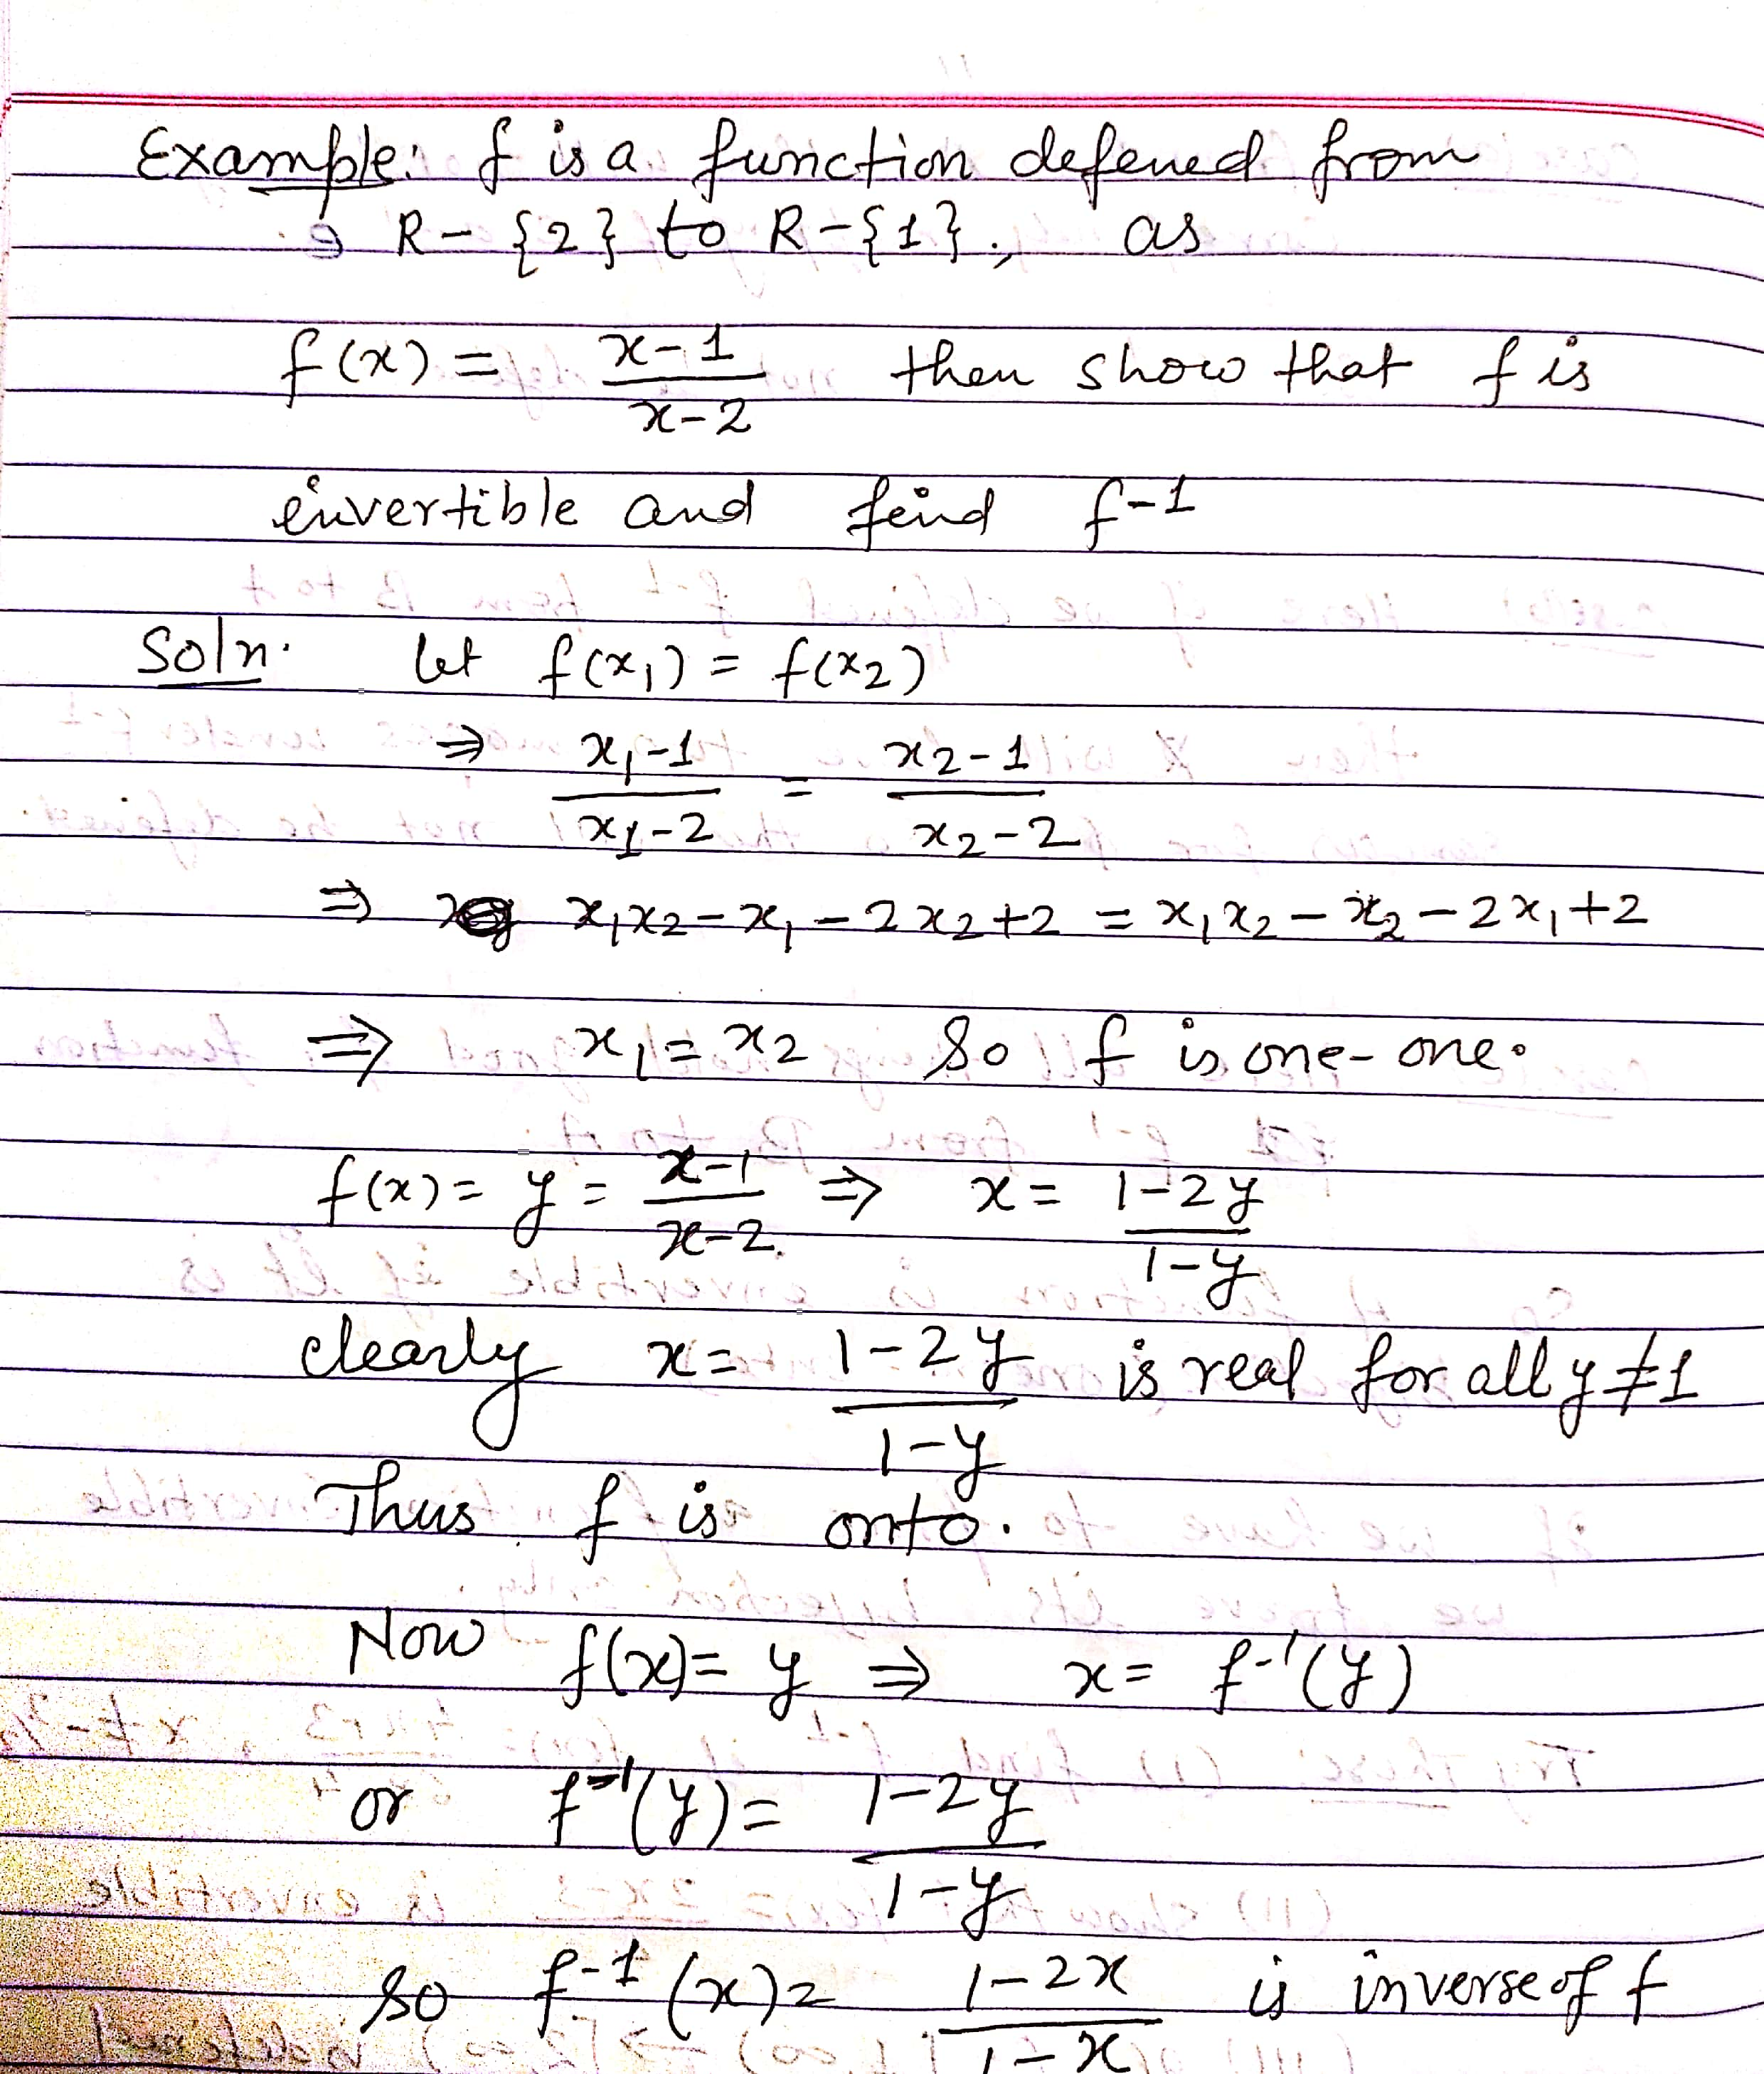 Example: f is a function defened from
R - {2} to R - {1}, as
f(x) = x-1/x-2 then show that f is
invertible and feind f-1
Soln. let f(x1) = f(x2)
⇒ x1-1/x1-2 = x2-1/x2-2
⇒ x1x2 - x1 - 2x2 + 2 = x1x2 - x2 - 2x1 + 2
⇒ x1 = x2 So f is one-one.
f(x) = y = x-1/x-2. ⇒ x = 1-2y/1-y
clearly x = 1-2y/1-y is real for all y ≠ 1
Thus f is onto.
Now f(x) = y ⇒ x = f-1(y)
or f-1(y) = 1-2y/1-y
So f-1(x) = 1-2x/1-x is inverse of f